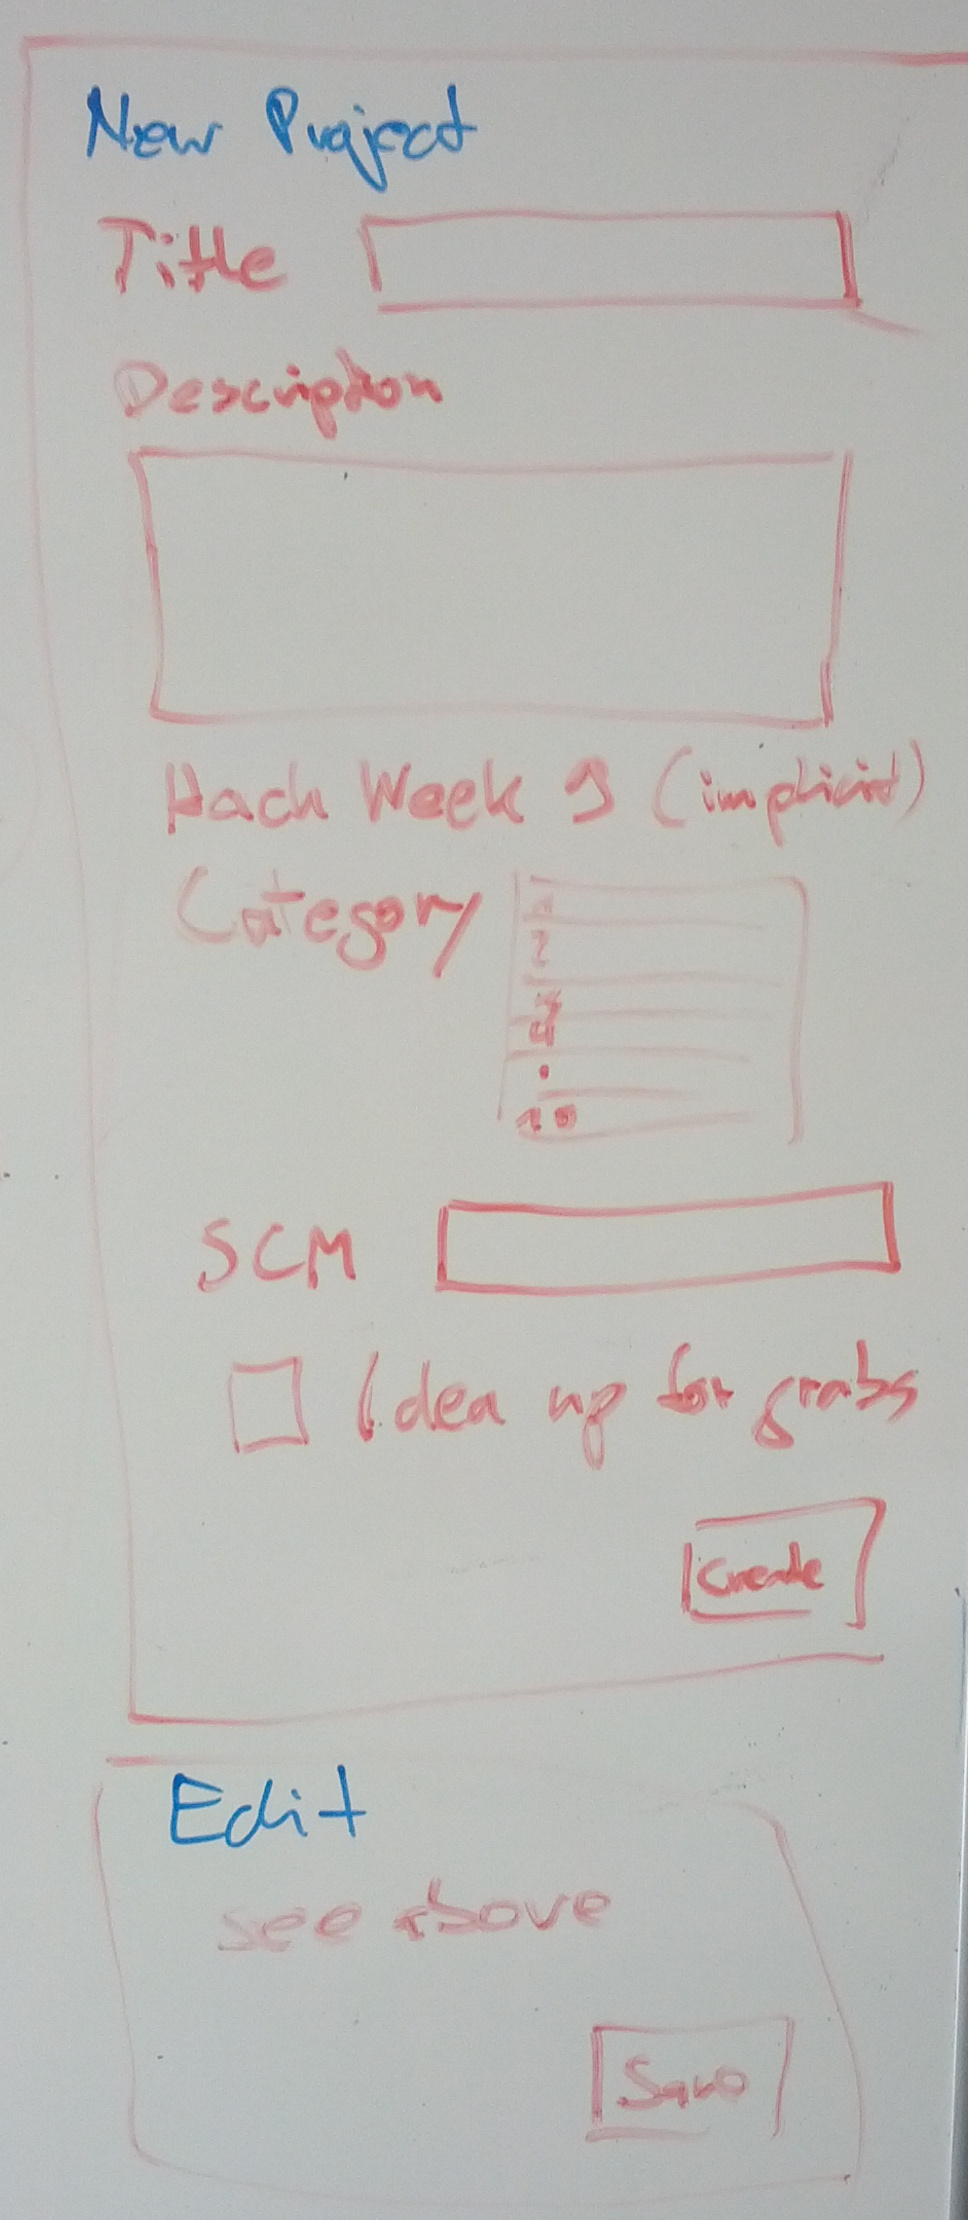 New Project
Title
Description
Hack Week 9 (implicit)
Category
1
2
3
4
.
10
SCM
Idea up for grabs
Create
Edit
see above
Save